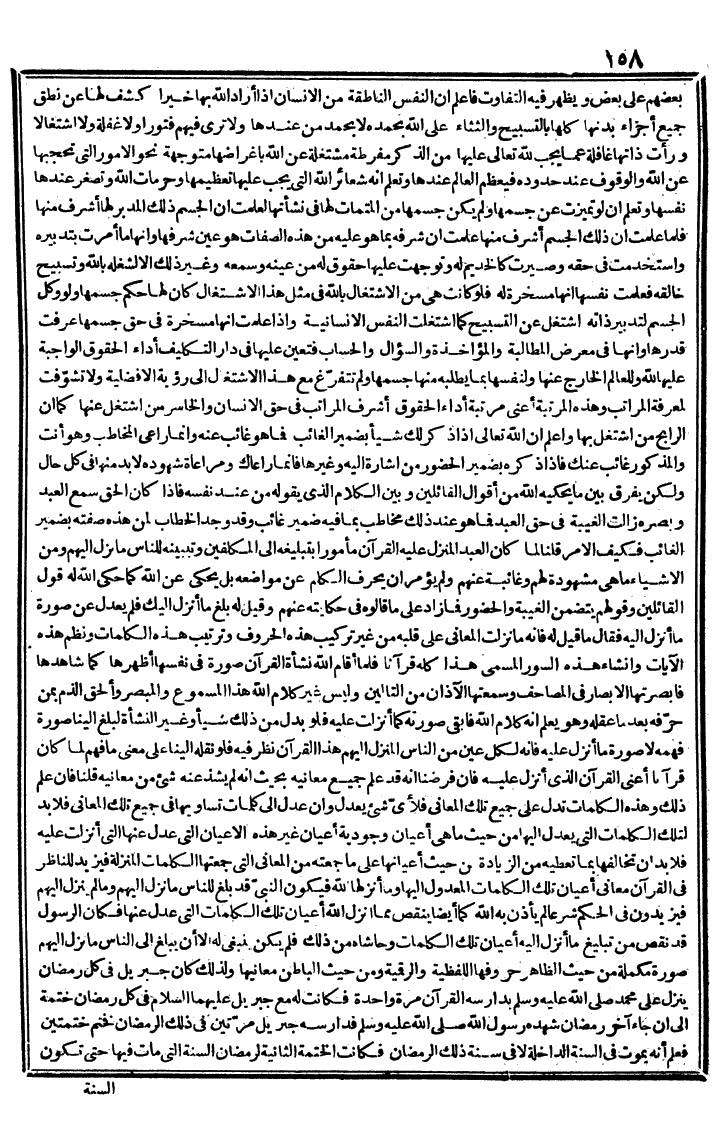 ١٥٨
بعضهم على بعض ويظهر فيه التفاوت فاعلم ان النفس الناطقة من الانسان اذا أراد الله بها خيرا كشف لها عن نطق
جميع أجزاء بدنها كلها بالتسبيح والثناء على الله بحمده لا بحمد من عندها ولا ترى فيهم فتورا ولا غفلة ولا اشتغالا
ورأت ذاتها غافلة عما يجب لله تعالى عليها من الذكر مفرطة مشتغلة عن الله باغراضها متوجهة نحو الامور التى تحجبها
عن الله والوقوف عند حدوده فيعظم العالم عندها وتعلم انه شعائر الله التى يجب عليها تعظيمها وحرمات الله وتصغر عندها
نفسها وتعلم ان لو تميزت عن جسمها ولم يكن جسمها من المتمات لها فى نشأتها لعلمت ان الجسم ذلك المدبر لها أشرف منها
فلما علمت ان ذلك الجسم أشرف منها علمت ان شرفه بما هو عليه من هذه الصفات هو عين شرفها وانها ما أمرت بتدبيره
واستخدمت فى حقه وصيرت كالخديم له وتوجهت عليها حقوق له من عينه وسمعه وغير ذلك الا لشغله بالله وتسبيح
خالقه فعلمت نفسها انها مسخرة له فلو كانت هى من الاشتغال بالله فى مثل هذا الاشتغال كان لها حكم جسمها ولو وكل
الجسم لتدبير ذاته اشتغل عن التسبيح كما اشتغلت النفس الانسانية واذا علمت انها مسخرة فى حق جسمها عرفت
قدرها وانها فى معرض المطالبة والمؤاخذة والسؤال والحساب فتعين عليها فى دار التكليف أداء الحقوق الواجبة
عليها لله وللعالم الخارج عنها ولنفسها بما يطلبه منها جسمها ولم تتفرّغ مع هذا الاشتغل الى رؤية الافضلية ولا تشوّفت
لمعرفة المراتب وهذه المرتبة أعنى مرتبة أداء الحقوق أشرف المراتب فى حق الانسان والخاسر من اشتغل عنها كما ان
الرابح من اشتغل بها واعلم ان الله تعالى اذا ذكر لك شيأ بضمير الغائب فما هو غائب عنه وانما راعى المخاطب وهو أنت
والمذكور غائب عنك فاذا ذكره بضمير الحضور من اشارة اليه وغيرها فانما راعاك ومراعاة شهوده لا بد منها فى كل حال
ولكن يفرق بين ما يحكيه الله من أقوال القائلين وبين الكلام الذى يقوله من عند نفسه فاذا كان الحق سمع العبد
وبصره زالت الغيبة فى حق العبد فما هو عند ذلك مخاطب بما فيه ضمير غائب وقد وجد الخطاب لمن هذه صفته بضمير
الغائب فكيف الامر قلنا لما كان العبد المنزل عليه القرآن مأمورا بتبليغه الى المكلفين وتبيينه للناس ما نزل اليهم ومن
الاشياء ما هى مشهودة لهم وغائبة عنهم ولم يؤمر ان يحرف الكلم عن مواضعه بل يحكى عن الله كما حكى الله له قول
القائلين وقولهم يتضمن الغيبة والحضور فما زاد على ما قالوه فى حكايته عنهم وقيل له بلغ ما أنزل اليك فلم يعدل عن صورة
ما أنزل اليه فقال ما قيل له فانه ما نزلت المعانى على قلبه من غير تركيب هذه الحروف وترتيب هذه الكلمات ونظم هذه
الآيات وانشاء هذه السور المسمى هذا كله قرآنا فلما أقام الله نشأة القرآن صورة فى نفسها أظهرها كما شاهدها
فابصرتها الابصار فى المصاحف وسمعتها الآذان من التالين وليس غير كلام الله هذا المسموع والمبصر وألحق الذم بمن
حرّفه بعد ما عقله وهو يعلم انه كلام الله فابقى صورته كما أنزلت عليه فلو بدل من ذلك شيأ وغير النشأة لبلغ الينا صورة
فهمه لا صورة ما أنزل عليه فانه لكل عين من الناس المنزل اليهم هذا القرآن نظر فيه فلو نقله الينا على معنى ما فهم لما كان
قرآنا أعنى القرآن الذى أنزل عليه فان فرضنا انه قد علم جميع معانيه بحيث انه لم يشذ عنه شئ من معانيه قلنا فان علم
ذلك وهذه الكلمات تدل على جميع تلك المعانى فلأىّ شئ يعدل وان عدل الى كلمات تساويها فى جميع تلك المعانى فلا بد
لتلك الكلمات التى يعدل اليها من حيث ما هى أعيان وجودية أعيان غير هذه الاعيان التى عدل عنها التى أنزلت عليه
فلا بد ان تخالفها بما تعطيه من الزيادة من حيث أعيانها على ما جمعته من المعانى التى جمعتها الكلمات المنزلة فيزيد للناظر
فى القرآن معانى أعيان تلك الكلمات المعدول اليها وما أنزلها الله فيكون النبىّ قد بلغ للناس ما نزل اليهم وما لم ينزل اليهم
فيزيدون فى الحكم شرعا لم يأذن به الله كما أيضا ينقص مما انزل الله أعيان تلك الكلمات التى عدل عنها فكان الرسول
قد نقص من تبليغ ما أنزل اليه أعيان تلك الكلمات وحاشاه من ذلك فلم يكن ينبغى له الا أن يبلغ الى الناس ما نزل اليهم
صورة مكملة من حيث الظاهر حروفها اللفظية والرقمية ومن حيث الباطن معانيها ولذلك كان جبريل فى كل رمضان
ينزل على محمد صلى الله عليه وسلم يدارسه القرآن مرة واحدة فكانت له مع جبريل عليهما السلام فى كل رمضان ختمة
الى ان جاء آخر رمضان شهده رسول الله صلى الله عليه وسلم فدارسه جبريل مرّتين فى ذلك الرمضان فختم ختمتين
فعلم أنه يموت فى السنة الداخلة لا فى سنة ذلك الرمضان فكانت الختمة الثانية لرمضان السنة التى مات فيها حتى تكون
السنة